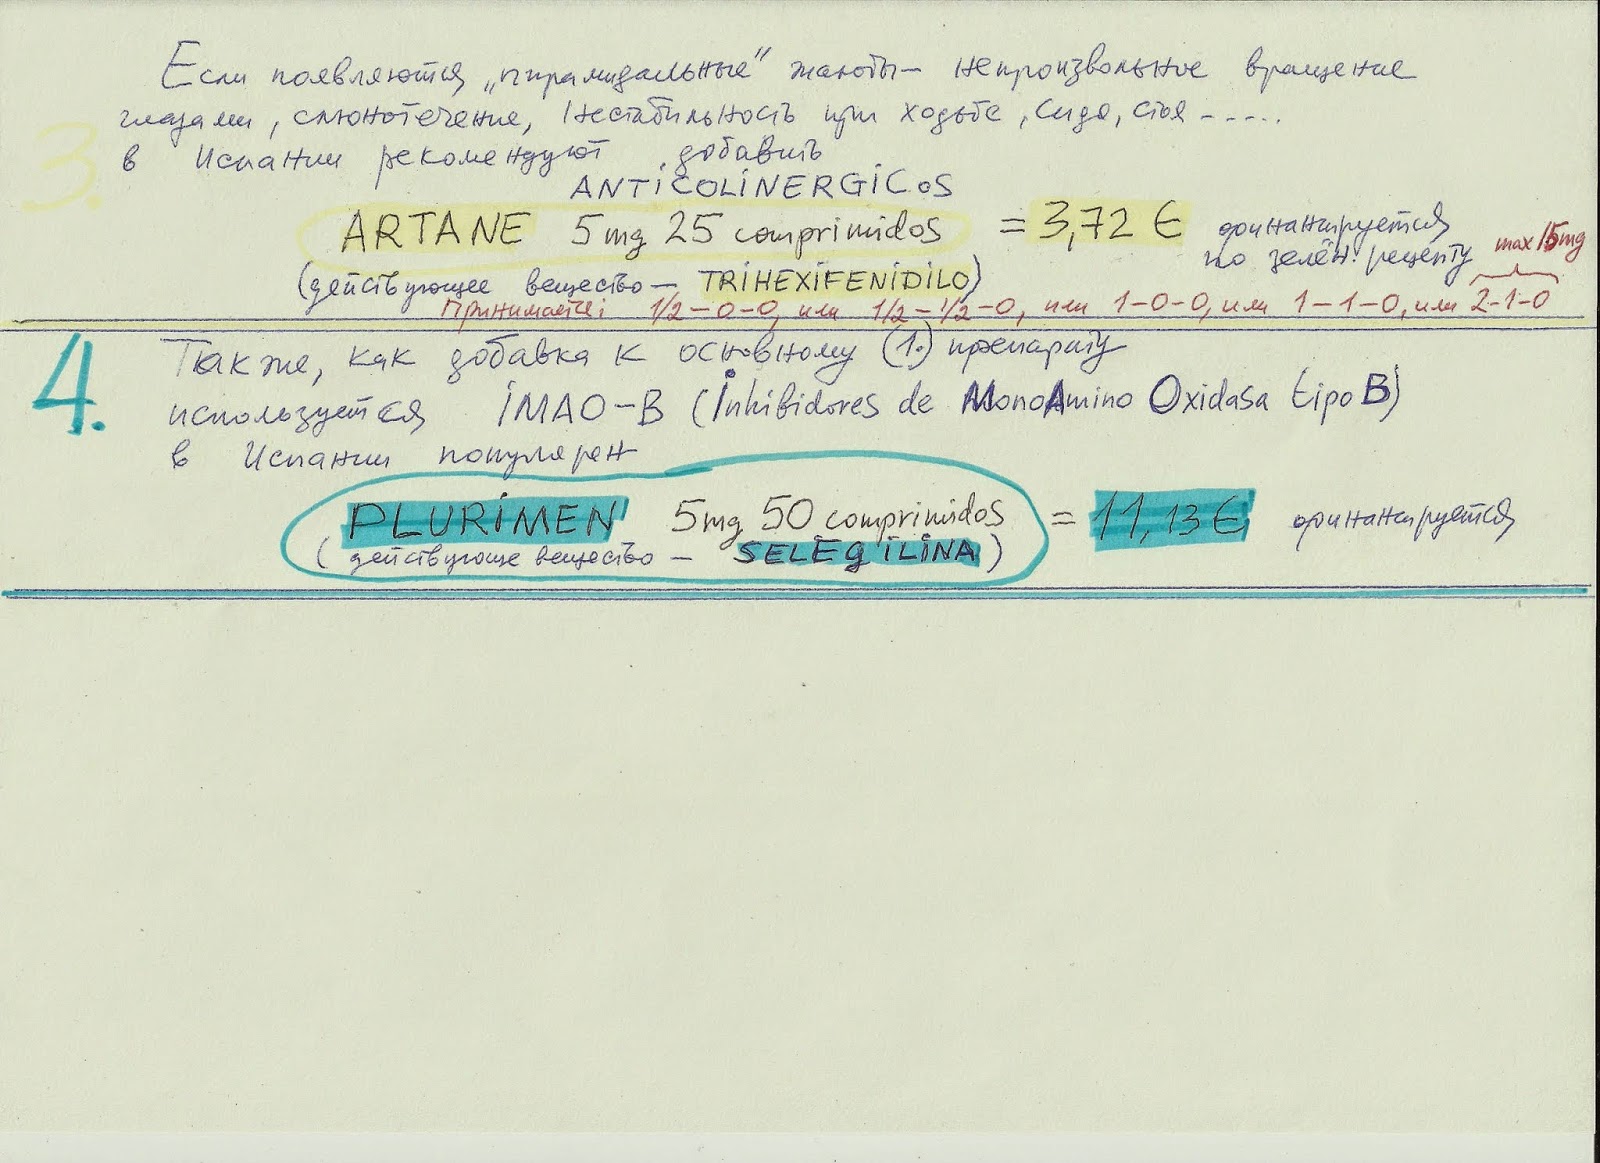 Если появляются „пирамидальные" жалобы – непроизвольное вращение
глазами, слюнотечение, нестабильность при ходьбе, сидя, стоя - - - - -
3. в Испании рекомендуют добавить
ANTICOLINERGICOS
ARTANE 5mg 25 comprimidos = 3,72 € финанируется
по зелён. рецепту max 15mg
(действующее вещество – TRIHEXIFENIDILO)
Принимается: 1/2-0-0, или 1/2-1/2-0, или 1-0-0, или 1-1-0, или 2-1-0
4. Также, как добавка к основному (1.) препарату
используется IMAO-B (Inhibidores de MonoAmino Oxidasa tipo B)
в Испании популярен
PLURIMEN 5mg 50 comprimidos = 11,13 € финанируется
(действующе вещество – SELEGILINA)